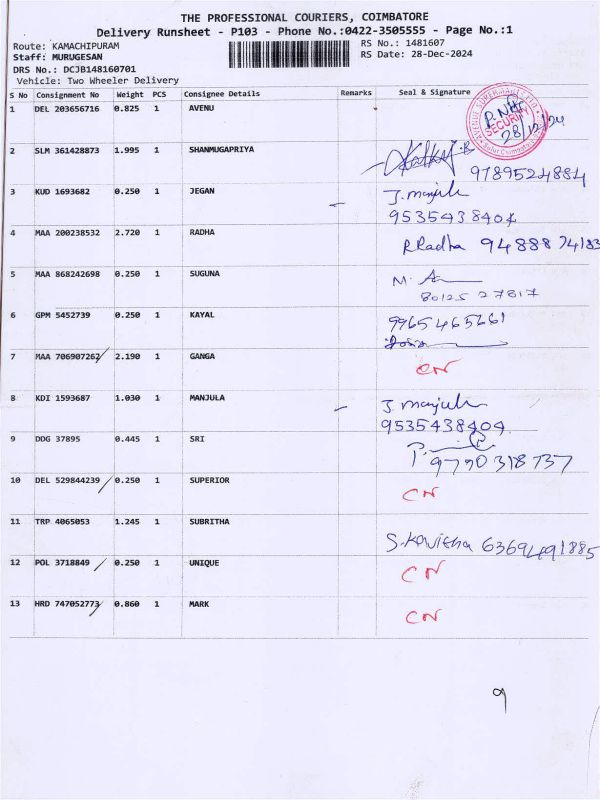 THE PROFESSIONAL COURIERS, COIMBATORE
Delivery Runsheet - P103 - Phone No.:0422-3505555 - Page No.:1
Route: KAMACHIPURAM RS No.: 1481607
Staff: MURUGESAN RS Date: 28-Dec-2024
DRS No.: DCJB148160701
Vehicle: Two Wheeler Delivery
S No Consignment No Weight PCS Consignee Details Remarks Seal & Signature
1 DEL 203656716 0.825 1 AVENU
SECURITY
28/12/24
2 SLM 361428873 1.995 1 SHANMUGAPRIYA
9789524884
3 KUD 1693682 0.250 1 JEGAN J. manjula
9535438404
4 MAA 200238532 2.720 1 RADHA R Radha 9488874183
5 MAA 868242698 0.250 1 SUGUNA
80125 27817
6 GPM 5452739 0.250 1 KAYAL 9965465661
7 MAA 706907262 2.190 1 GANGA CN
8 KDI 1593687 1.030 1 MANJULA J. manjula
9535438404
9 DDG 37895 0.445 1 SRI
9790318737
10 DEL 529844239 0.250 1 SUPERIOR CN
11 TRP 4065053 1.245 1 SUBRITHA
S. Kavitha 6369491885
12 POL 3718849 0.250 1 UNIQUE CN
13 HRD 747052773 0.860 1 MARK CN
9